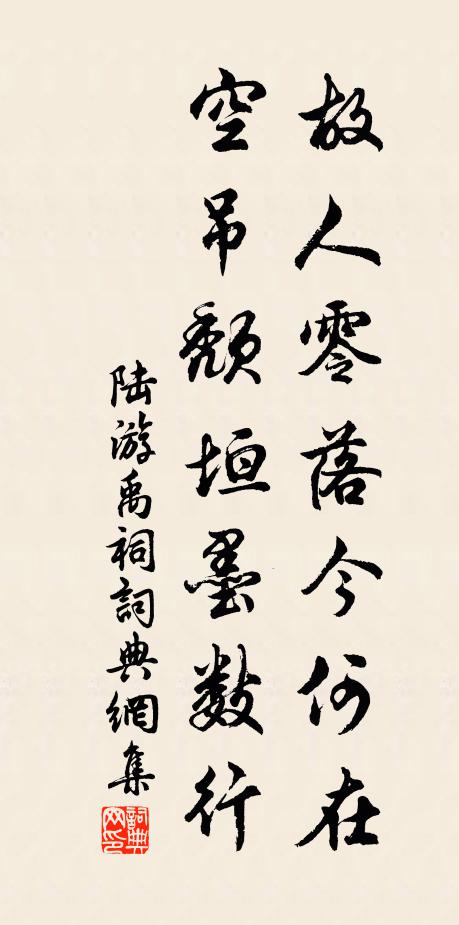 故人零落今何在
空吊頹垣墨數行
陆游禹祠詞典網集
詞典
网印